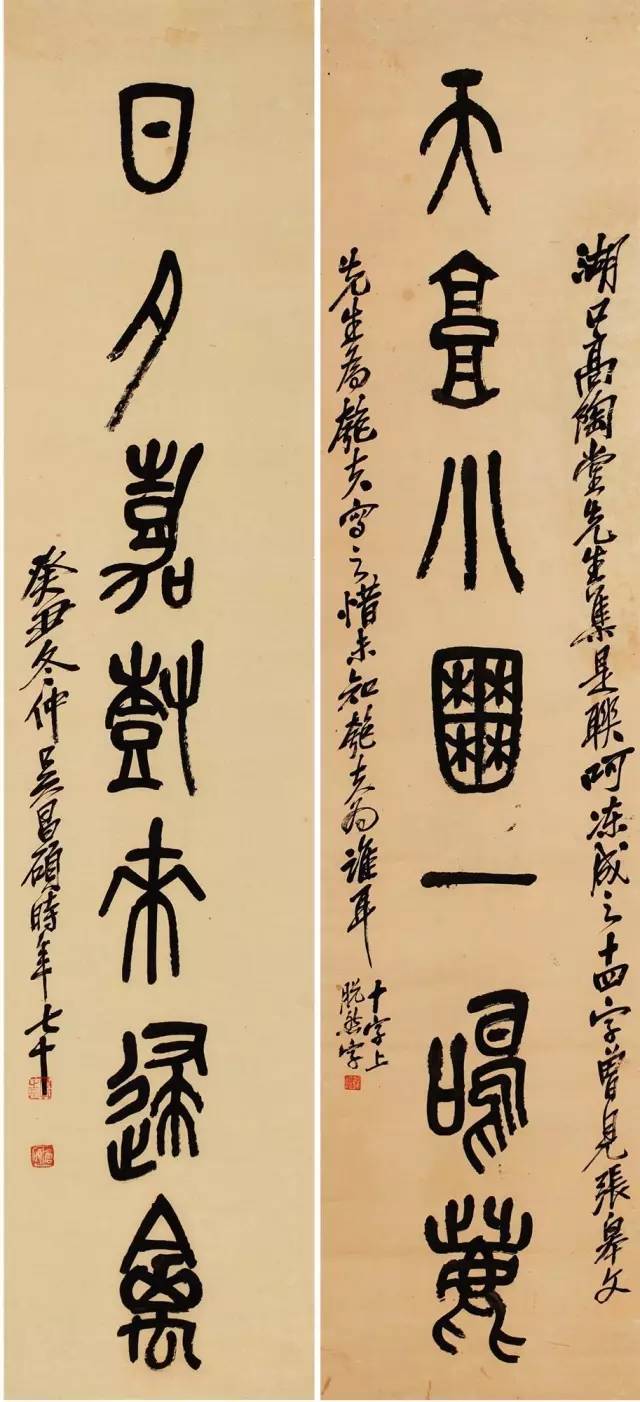 天小囿一鳴鹿
湖口高陶堂先生集是聯呵凍成之十四字曾見張皋文
先生為夫寫之惜未知夫為誰耳
十字上
脫然字
日夕嘉樹来歸禽
癸丑冬仲吴昌碩時年七十